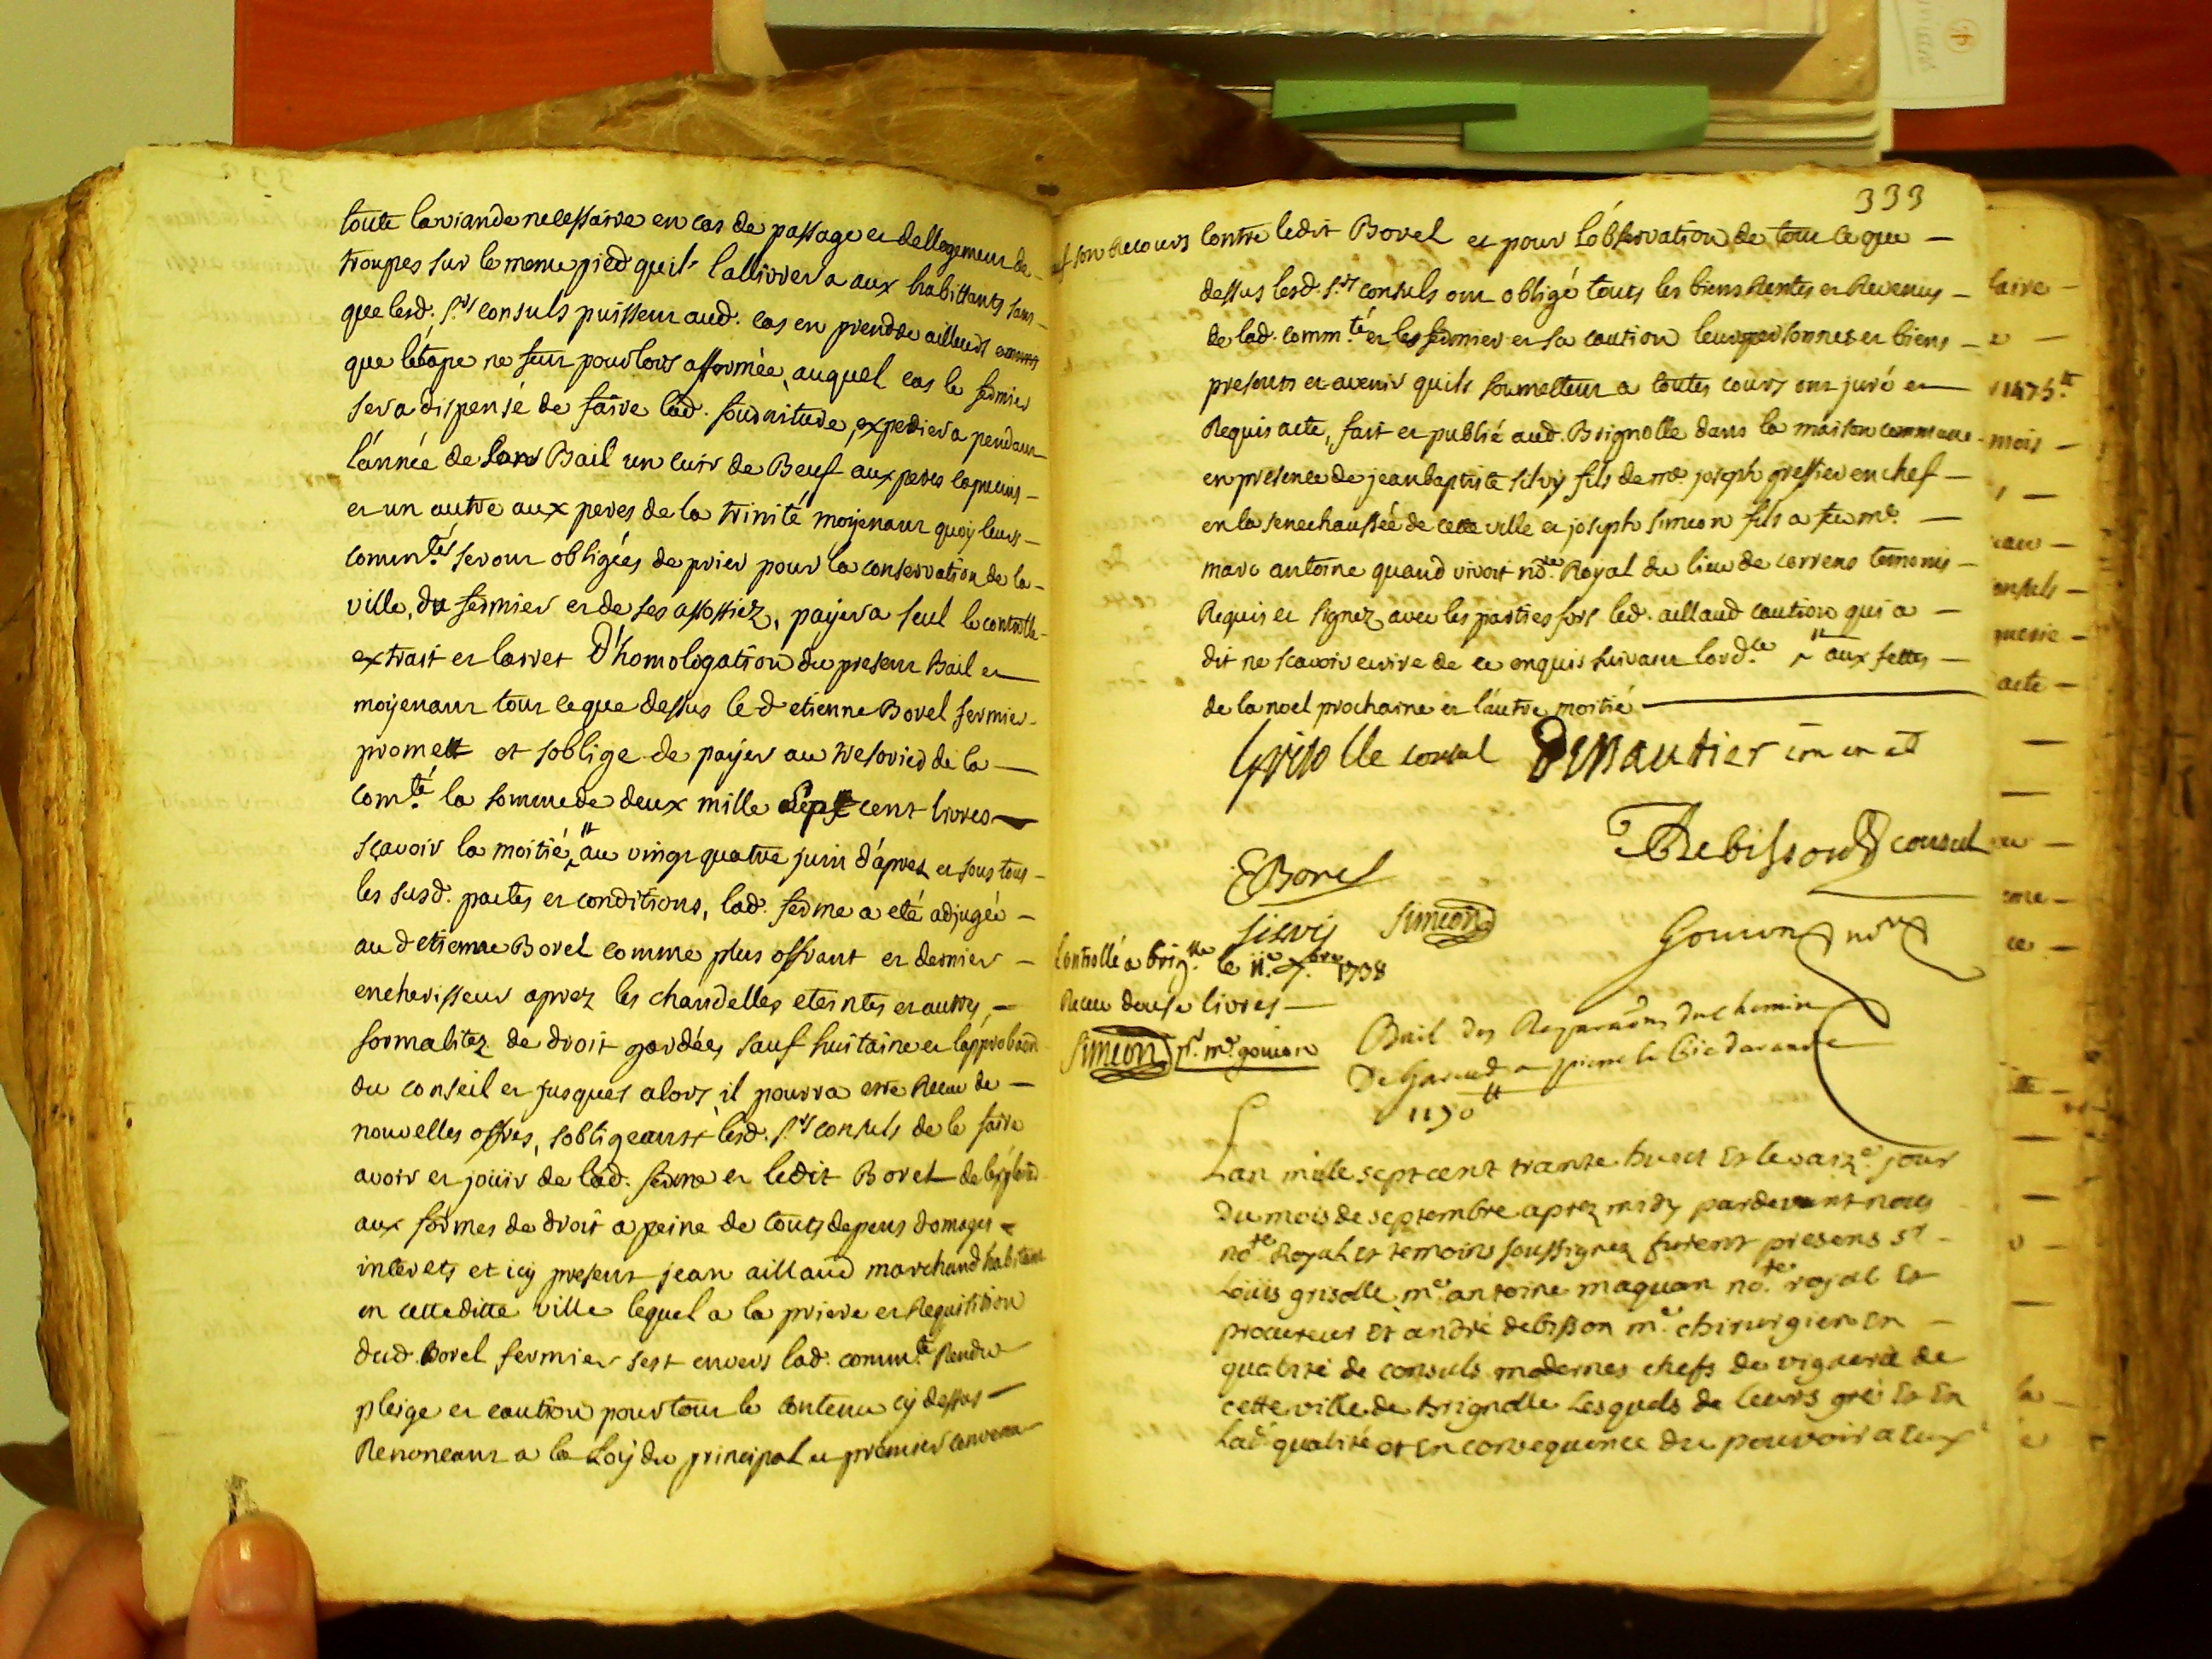 toute la viande necessaire en cas de passage et dellogement de
troupes sur le meme pied quil la livrera aux habittants sans
que lesd. srs consuls puissent aud. cas en prendre ailleurs
que létape ne feut pour lors affermée, auquel cas le fermier
sera dispensé de faire lad. fourniture, expediera pendant
lánnée de son Bail un cuir de Beuf aux peres capucins
et un autre aux peres de la trinité moyenant quoy leurs
commtés seront obligées de prier pour la conservation de la
ville, du fermier et de ses assossiez, payera seul le controlle
extrait et larret D'homologation du present Bail et
moyenant tout ce que dessus le d etienne Borel fermier
promett et soblige de payer au tresorier de la
comté la somme de deux mille sept cent livres
sçavoir la moitié au vingt quatre juin dápres et sous tous
les susd. pactes et conditions, lad. ferme a eté adjugée
au d etienne Borel comme plus offrant et dernier
encherisseur aprez les chandelles eteintes et autres
formalitez de droit gardées sauf huitaine et lápprobaon
du conseil et jusques alors il pourra etre Receu de
nouvelles offres, sobligeant lesd. srs consuls de le faire
avoir et joüir de lad. ferme et ledit Borel de
aux formes de droit a peine de touts depens domages
interets et icy present jean aillaud marchand habitant
en cette ditte ville lequel a la priere et Requisition
dud. Borel fermier sest envers lad. commté Rendu
pleige et caution pour tout le contenu cy dessus
Renoncant a la Loy du principal et premier convenu
333
sauf son Recours contre ledit Borel et pour Lóbservation de tout ce que
dessus lesd. srs consuls ont obligé touts les biens Rentes et Revenus
de lad. commté et les fermier et sa caution leurs personnes et biens
presents et avenir quils soumettent a toutes cours ont juré et
Requis acte, fait et publié aud. Brignolle dans la maison commune
en presence de jean baptiste silvy fils de me joseph greffier en chef
en la senechaussée de cette ville et joseph simeon fils a feu me
marc antoine quand vivoit nore Royal du lieu de correns temoins
Requis et signez avec les parties fors led. aillaud caution qui a
dit ne scavoir ecrire de ce enquis suivant lordce aux fettes
de la noel prochaine et láutre moitié
Grisolle consul
Debisson consul
EBorel
Simeon
Gouion nore
Controllé a briglle le 11e 7bre 1738
Receu douse livres
Simeon pr me gouion
Bail des Reparaons du chemin
1190 tt
Lan mille sept cent trante huict et le jour
du mois de septembre aprez midy pardevant nous
nore Royal et temoins soussignez furent presens sr
Loüis grisolle me antoine maquan nore royal et
procureur et andré debisson me chirurgien en
qualité de consuls modernes chefs de viguerie de
cette ville de brignolle Lesquels de leurs gré et en
Lad. qualité et en consequence du pouvoir a eux